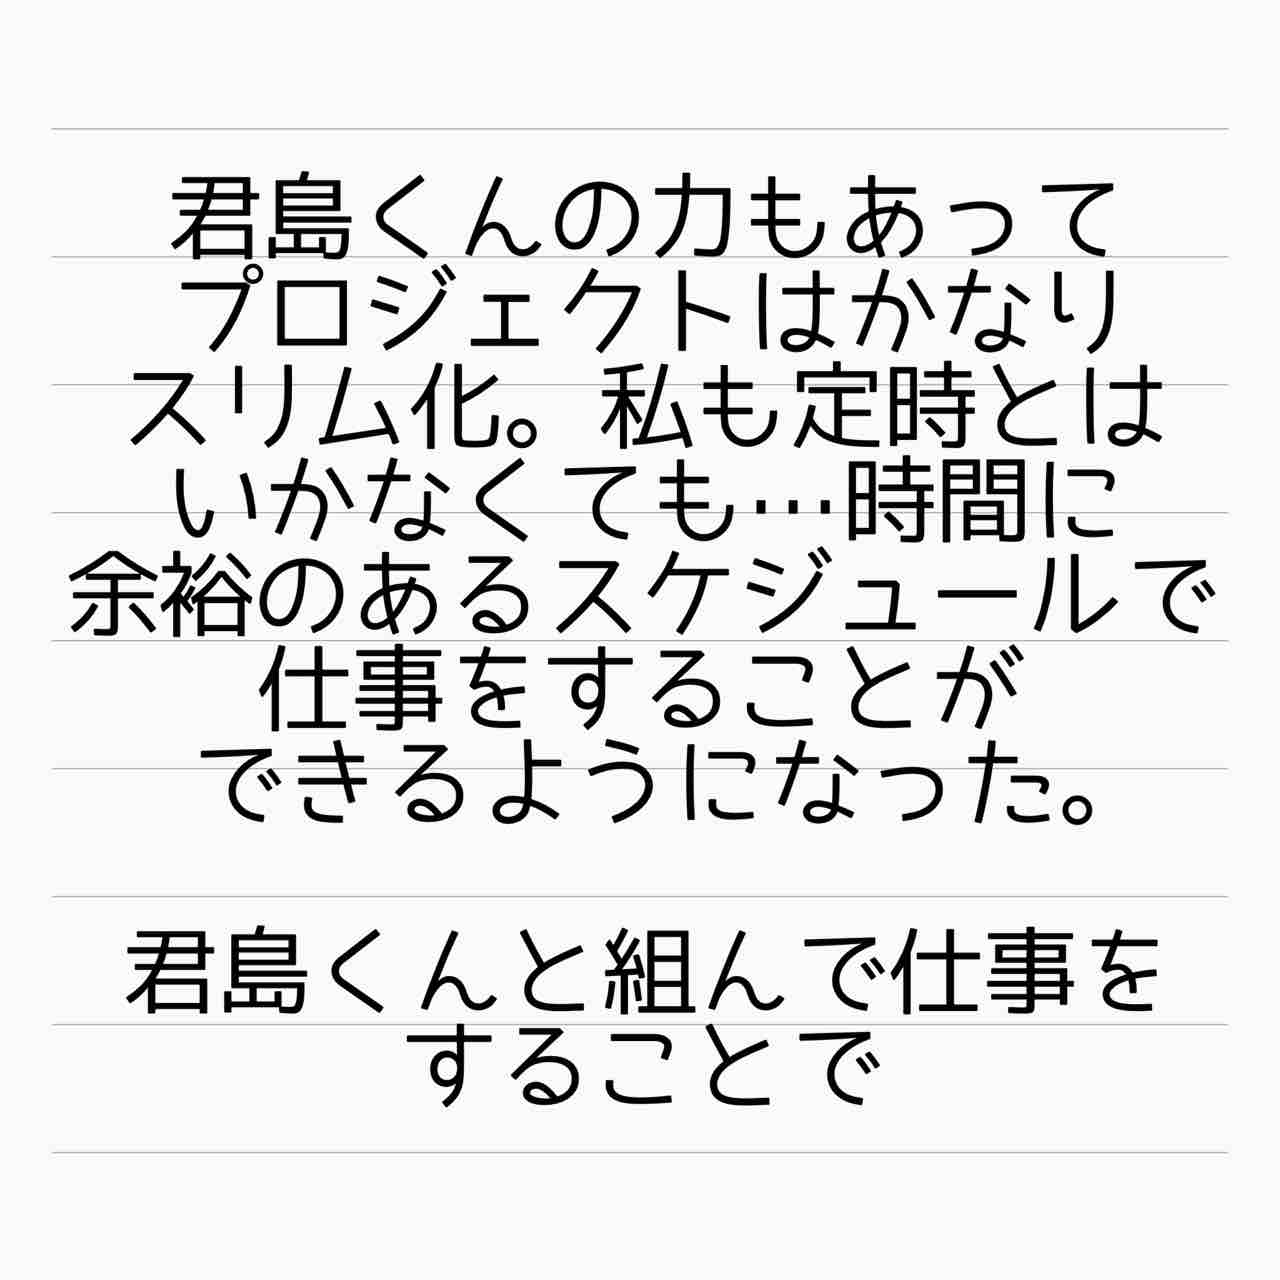 君島くんの力もあって
プロジェクトはかなり
スリム化。私も定時とは
いかなくても…時間に
余裕のあるスケジュールで
仕事をすることが
できるようになった。
君島くんと組んで仕事を
することで